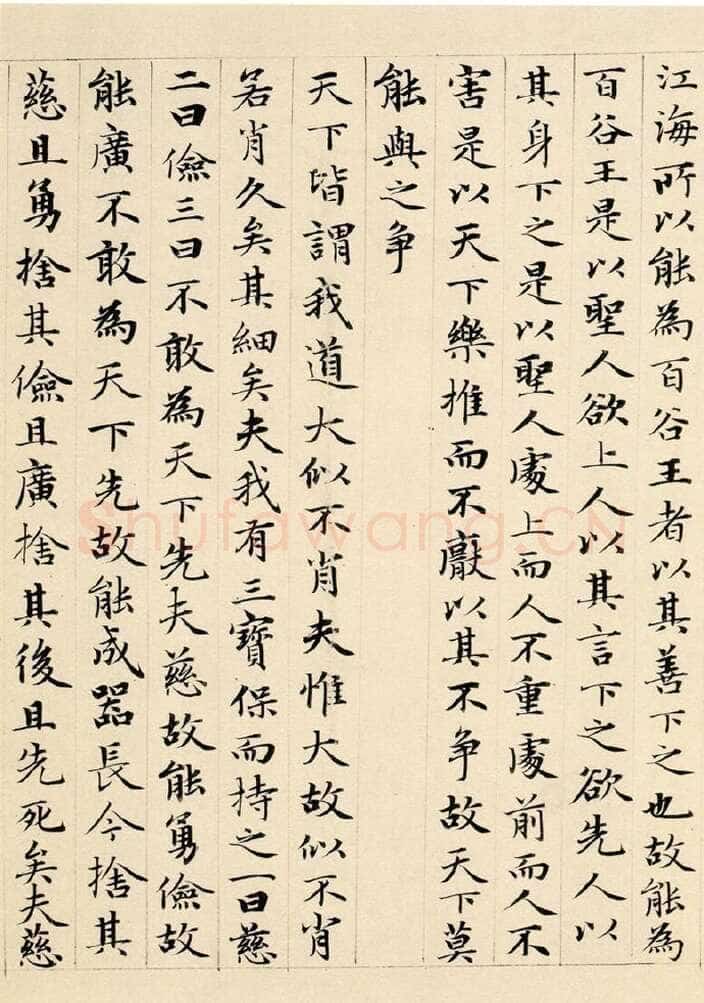 江海所以能為百谷王者以其善下之也故能為
百谷王是以聖人欲上人以其言下之欲先人以
其身下之是以聖人處上而人不重處前而人不
害是以天下樂推而不厭以其不争故天下莫
能與之争
天下皆謂我道大似不肖夫惟大故似不肖
若肖久矣其細矣夫我有三寶保而持之一曰慈
二曰儉三曰不敢為天下先夫慈故能勇儉故
能廣不敢為天下先故能成器長今捨其
慈且勇捨其儉且廣捨其後且先死矣夫慈
Shufawang.CN